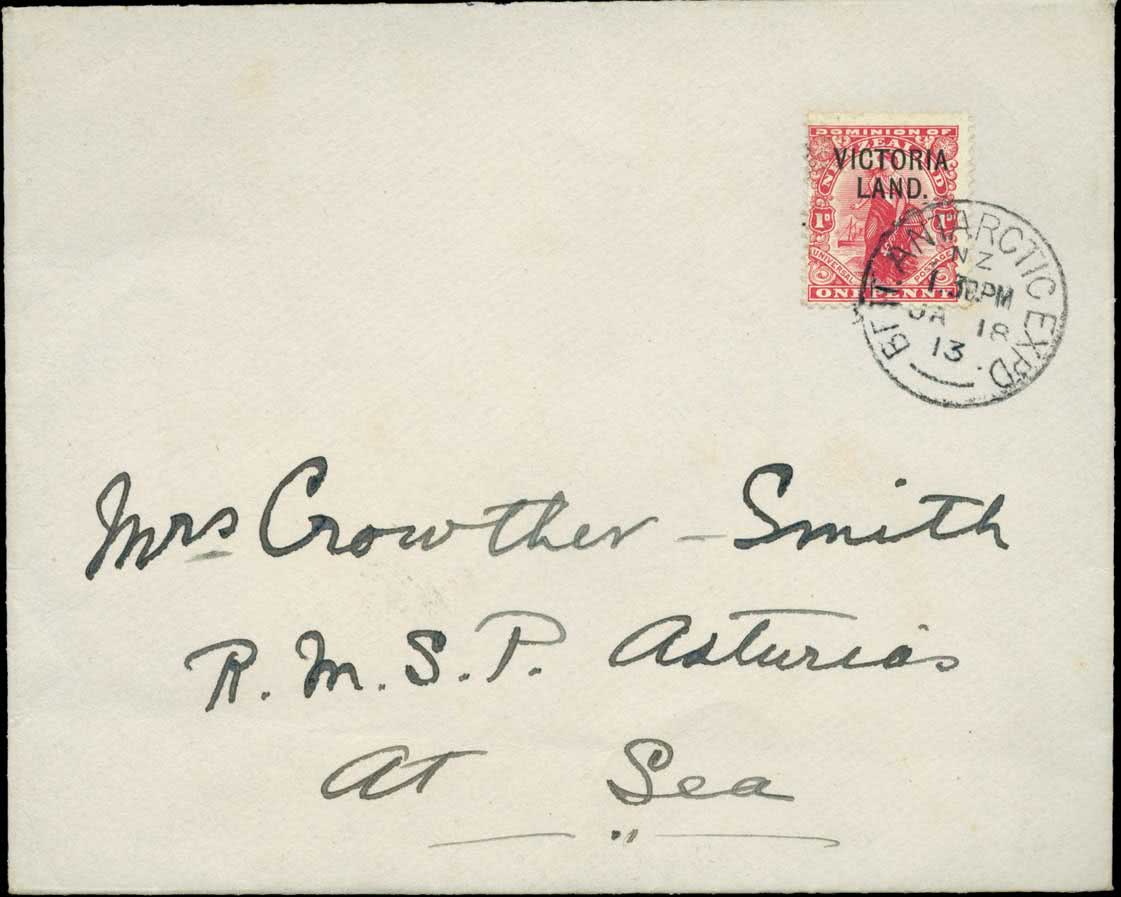 DOMINION OF
NEW ZEALAND
VICTORIA
LAND.
1D 1D
UNIVERSAL POSTAGE
ONE PENNY
BRIT. ANTARCTIC EXPD
NZ
1.30PM
JA 18
13
Mrs Crowther-Smith
R. M. S. P. Asturias
At Sea